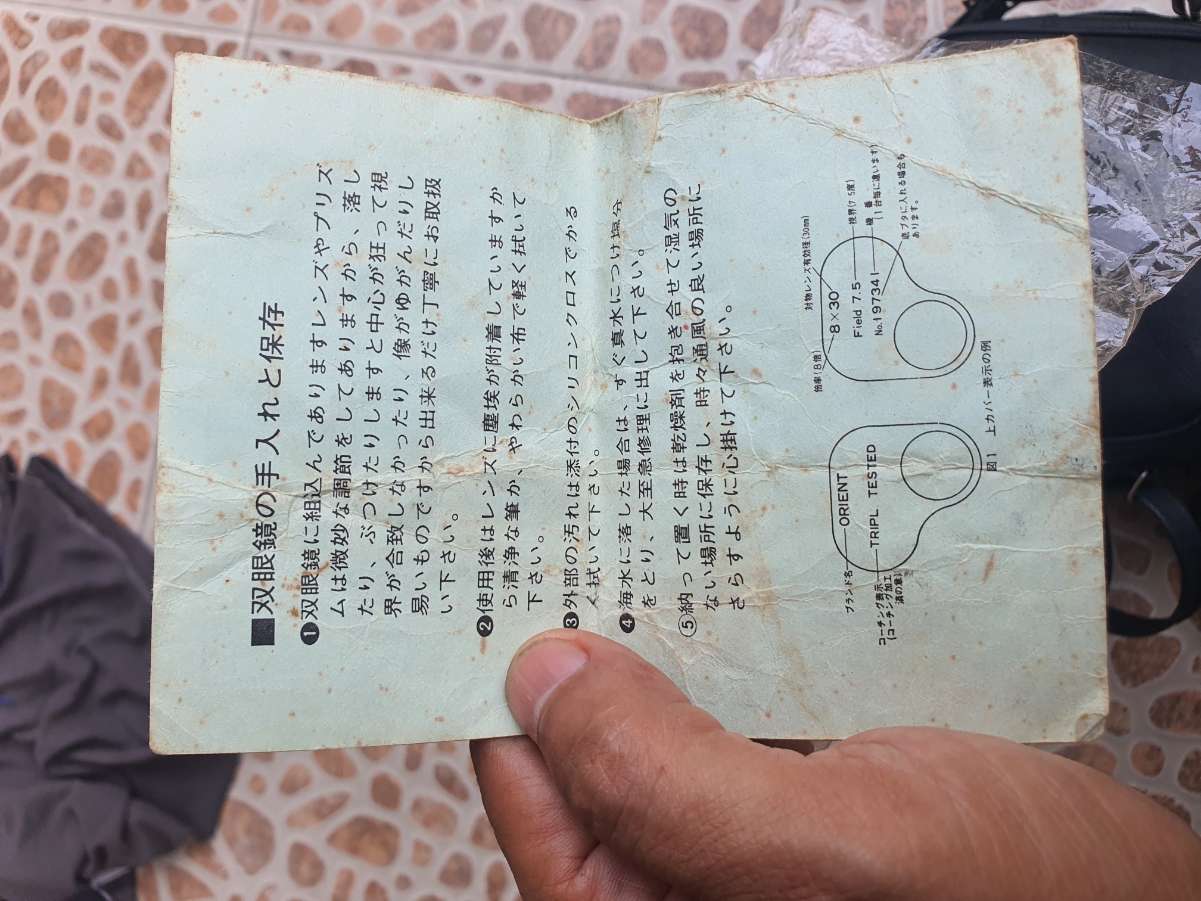 ■双眼鏡の手入れと保存
❶双眼鏡に組込んでありますレンズやプリズ
ムは微妙な調節をしてありますから、落し
たり、ぶつけたりしますと中心が狂って視
界が合致しなかったり、像がゆがんだりし
易いものですから出来るだけ丁寧にお取扱
い下さい。
❷使用後はレンズに塵埃が附着していますか
ら清浄な筆か、やわらかい布で軽く拭いて
下さい。
❸外部の汚れは添付のシリコンクロスでかる
く拭いて下さい。
❹海水に落した場合は、すぐ真水につけ塩分
をとり、大至急修理に出して下さい。
⑤納って置く時は乾燥剤を抱き合せて湿気の
ない場所に保存し、時々通風の良い場所に
さらすように心掛けて下さい。
ブランド名
ORIENT
TRIPL TESTED
コーチング表示
(コーチング加工
済の意)
倍率(8倍)
対物レンズ有効径(30mm)
8×30
Field 7.5
視界(7.5度)
No.197341
機番
(1台毎に違います)
底ブタに入れる場合も
あります。
図1 上カバー表示の例